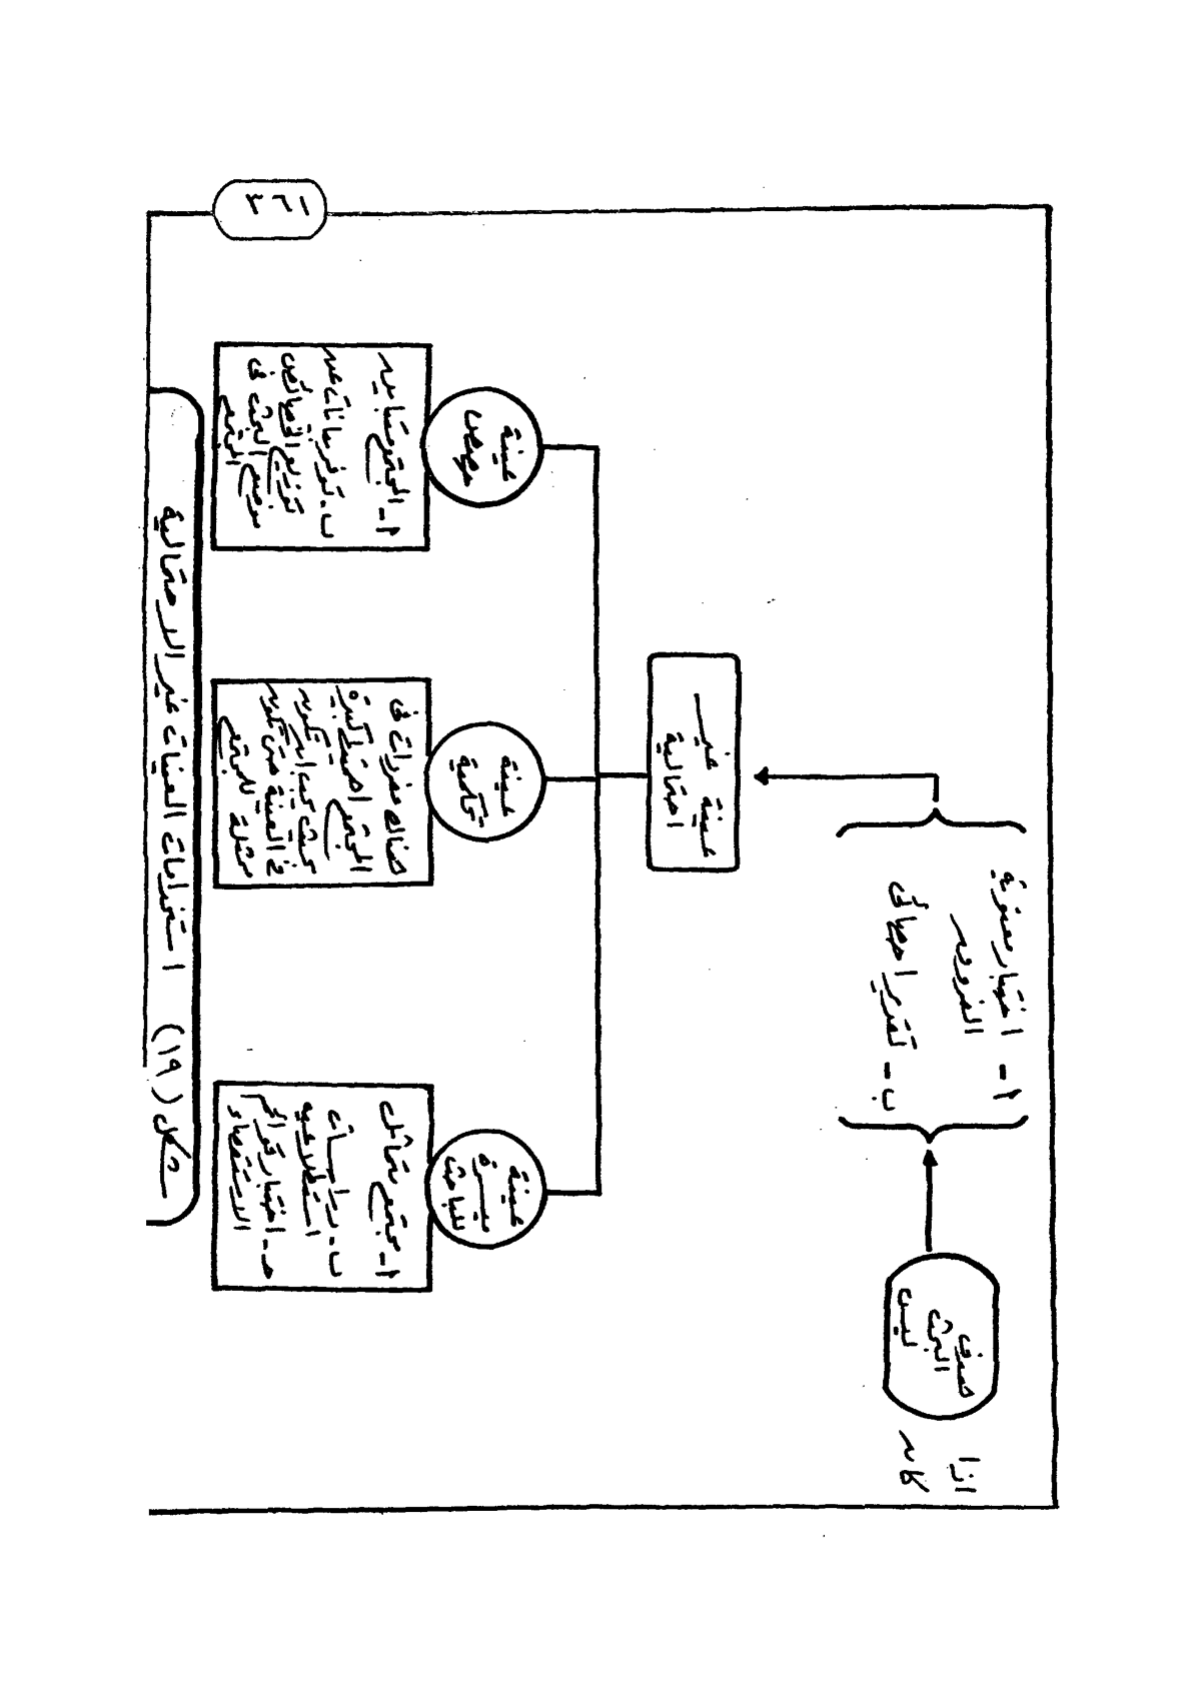 اذا
كان
هدف
البحث
ليس
١- اختبار معنوية
الفروض
ب- تقدير احصائى
عينة غير
احتمالية
عينة
ميسرة
للباحث
عينة
تحكمية
عينة
حصص
١- مجتمع متماثل
ب- دراسات
استطلاعيه
حـ- اختبار قوائم
الاستقصاء
هناك مفردات فى
المجتمع اهميتها كبيرة
بحيث يجب ان تكون
فى العينة حتى تكون
ممثلة للمجتمع
١- المجتمع متباين
ب- توفر بيانات عن
توزيع الخصائص
موضع البحث فى
المجتمع
شكل (١٩) استخدامات العينات غير الاحتمالية
٣٦١